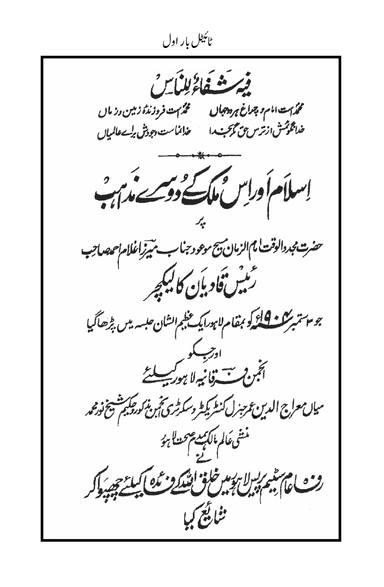 ٹائیٹل بار اول
فِیهِ شَفَاءٌ لِّلنَّاسِ
محمدؐ است امام و چراغ ہر دو جہاں محمدؐ است فروزندۂ زمین و زماں
خدا نگوئمش از ترس حق مگر بخدا خدا نماست وجودش برائے عالمیاں
اسلام اور اس ملک کے دوسرے مذاہب
پر
حضرت مجدد الوقت امام الزمان مسیح موعود جناب میرزا غلام احمد صاحب
رئیس قادیان کا لیکچر
جو ۳ ستمبر ۱۹۰۴ء کو بمقام لاہور ایک عظیم الشان جلسہ میں پڑھا گیا
اور جسکو
انجمن فرقانیہ لاہور کیلئے
میاں معراج الدین عمر جنرل کنٹریکٹر و سکرٹری انجمن مذکور و حکیم شیخ نور محمد
منشی عالم مالک ہمدم صحت لاہور
نے
رفاہ عام سٹیم پریس لاہور میں خلق اللہ کے فائدہ کیلئے چھپوا کر
شایع کیا